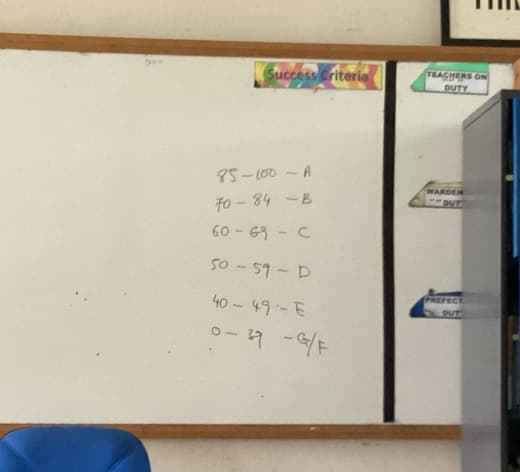 Success Criteria
TEACHERS ON
DUTY
WARDEN
DUTY
PREFECT
DUT
85-100 - A
70-84 - B
60-69 - C
50-59 - D
40-49 - E
0-39 - G/F